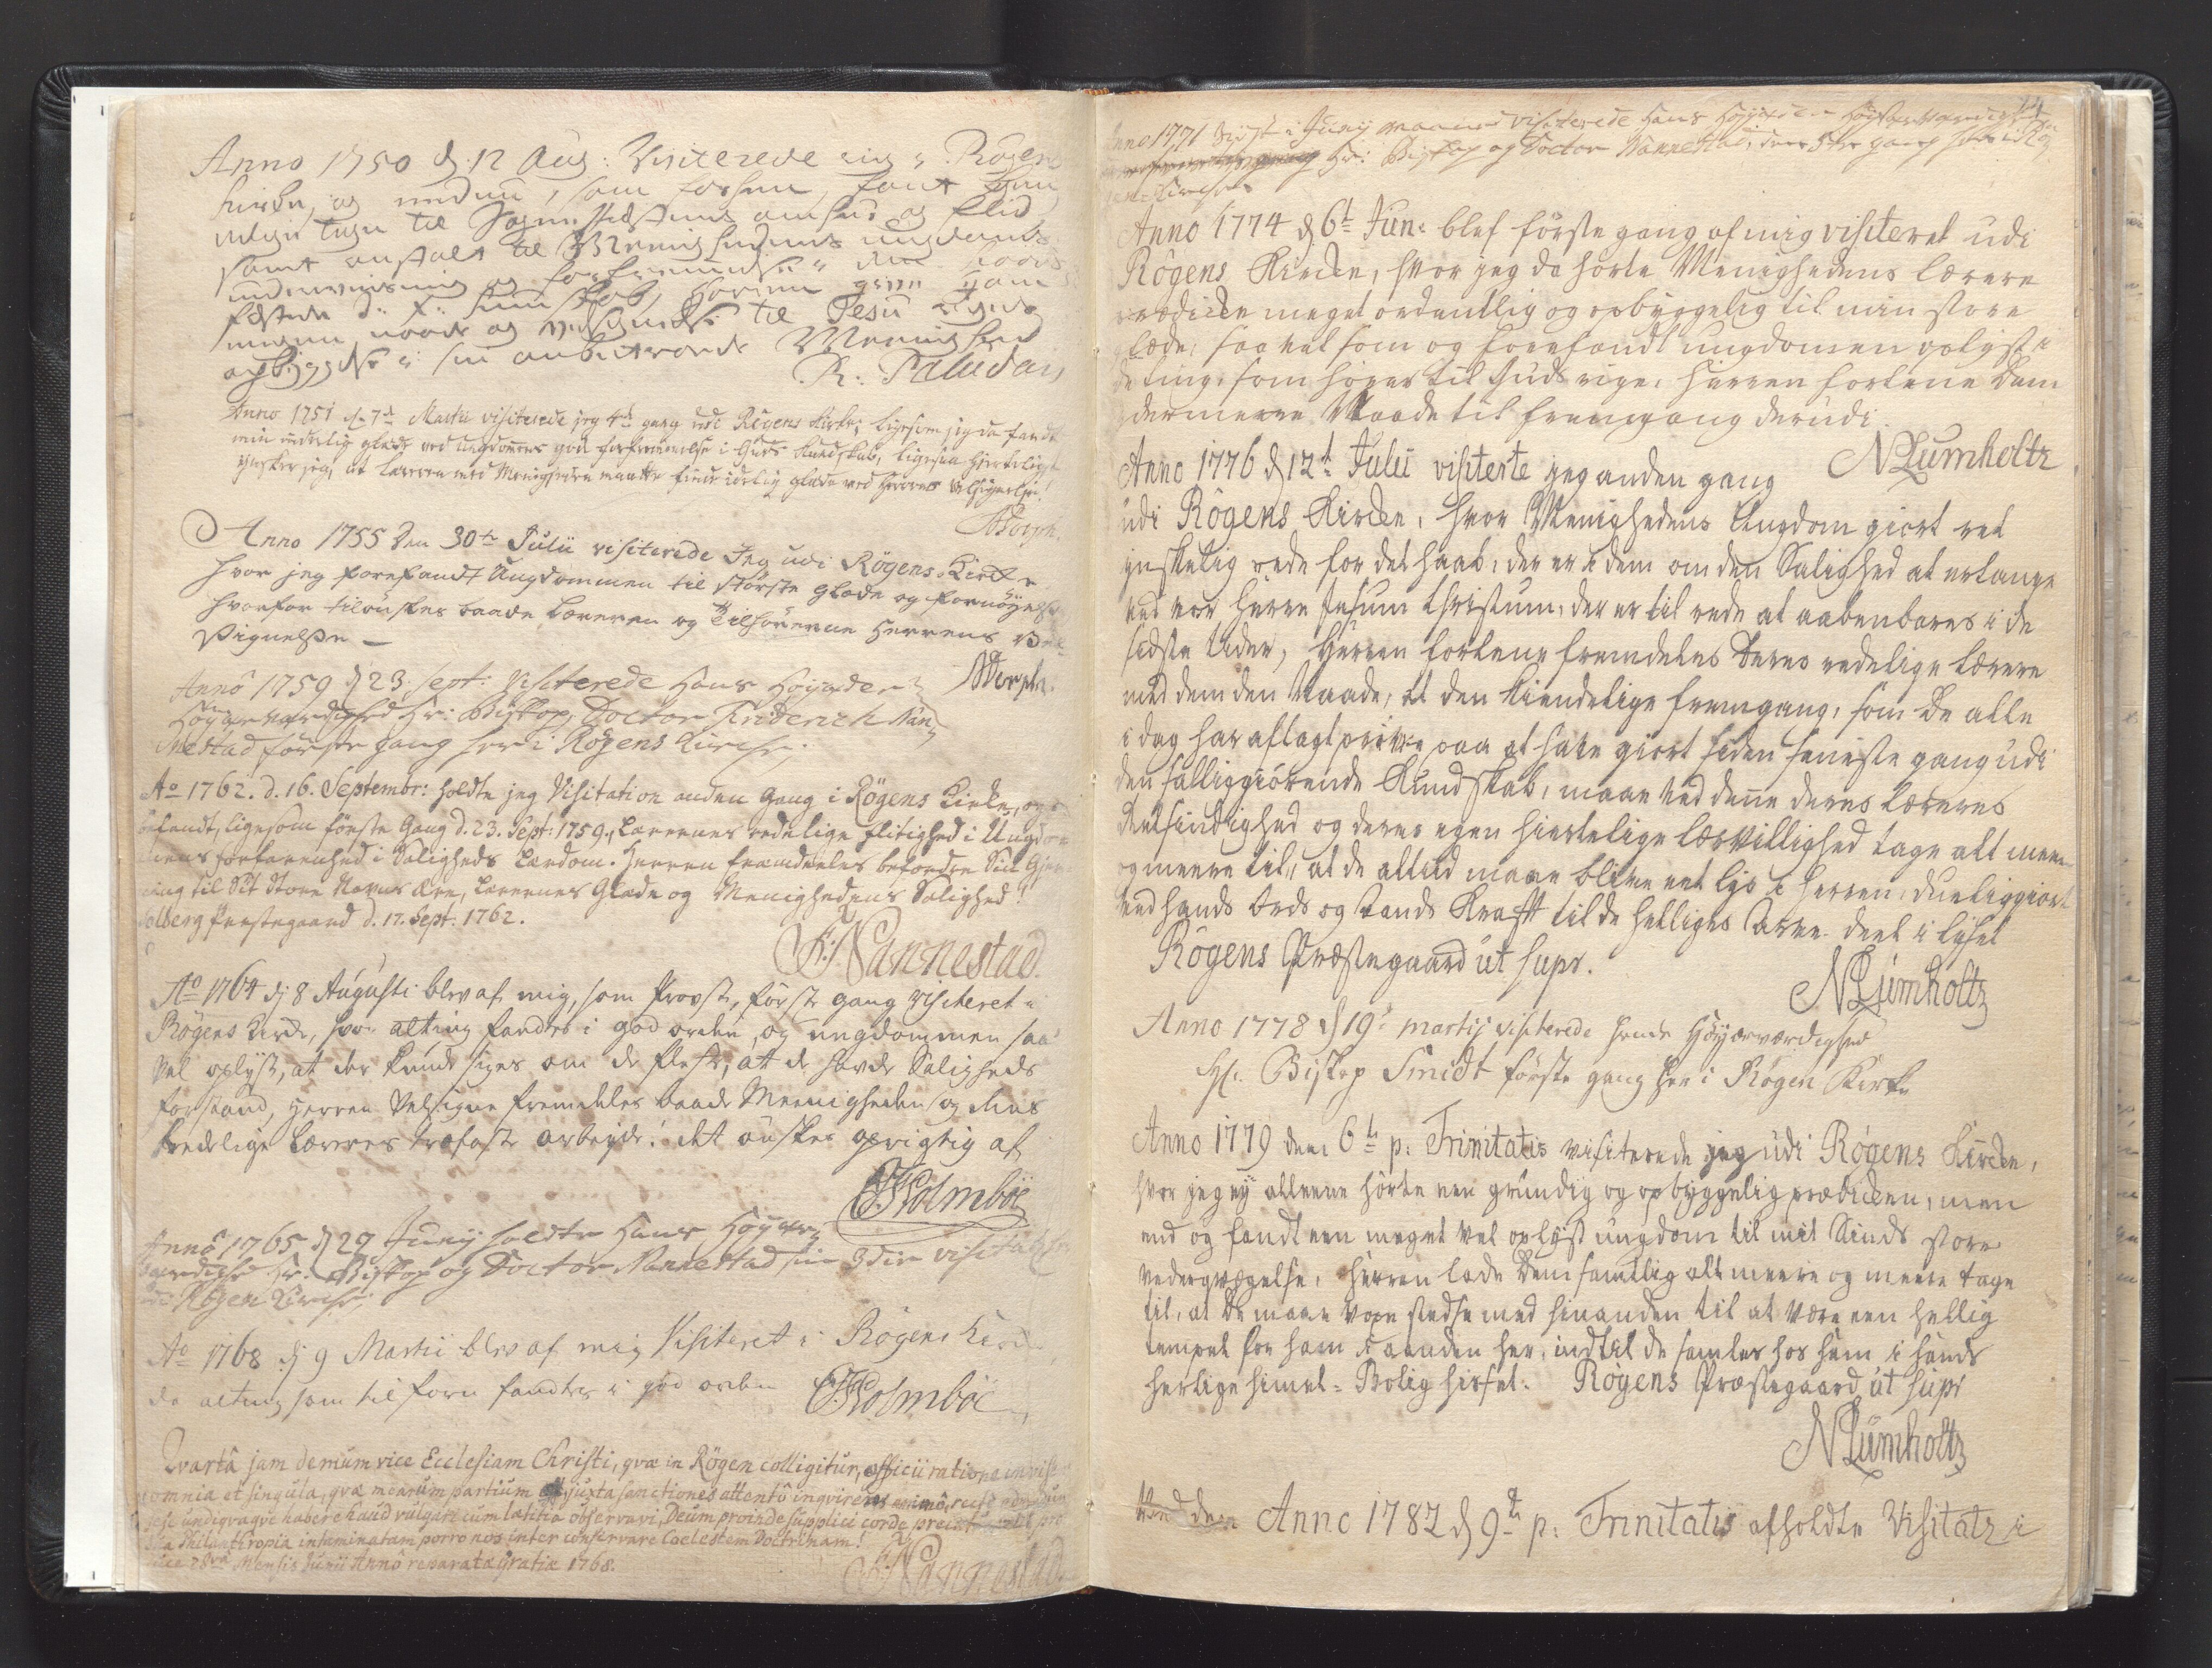 Anno 1750 d: 12 Aug: Visiterede ieg i Røgens
Kirke, og endnu, som forhen, fant
tegn til flid
samt til Menighedens ungdoms
underviisning og
til Jesu
naade og
Menighed
R: Paludan
Anno 1751 d. 7de Martii visiterede jeg 4de gang udi Røgens Kirke; ligesom jeg da fandt
min inderlig glæde ved Ungdommens god forfremmelse i Guds Kundskab, ligesaa hiertelig
ynsker jeg, at læreren med Menigheden maatte finde idelig glæde ved Herrens Velsignelse!
Anno 1755 Den 30te Julii visiterede Jeg udi Røgens Kirke
hvor jeg forefandt Ungdommen til største glæde og fornøyelse
hvorfor tilønskes baade Læreren og Tilhørerne Herrens Vel
signelße —
Anno 1759 d 23 Sept: Visiterede Hans Høyædle
Høyærværdighed Hr: Biskop, Doctor Friderich Nan
nestad første gang her i Røgens Kirche;
Ao 1762. d. 16. Septembr: holdte jeg Visitation anden Gang i Røgens Kirke, og
befandt, ligesom første Gang d. 23. Sept: 1759., Lærernes redelige flitighed i Ungdom
mens forfarenhed i Saligheds Lærdom. Herren fremdeeles befordre Sin Gjer
ning til Sit Store Navns Ære, Lærernes Glæde og Menighedens Salighed!
Præstegaard d. 17. Sept. 1762.
F: Nannestad.
Ao 1764 d 8 Augusti blev af mig, som Provst, første gang visiteret i
Røgens Kirke, hvor alting fandtes i god orden, og ungdommen saa
vel oplyst, at der kunde siges om de fleste, at de havde Saligheds
forstand, Herren Velsigne fremdeles baade Meenigheden og dens
redelige Læreres troefaste arbeyde! det ønskes oprigtig af
Holmboe
Anno 1765 d 29 Junij holdte Hans Høyær
værdighed Hr: Biskop og Doctor Nannestad sin 3die visitatz
udi Røgen Kirche;
Ao 1768 d 9 Martii blev af mig Visiteret i Røgens Kirke,
da alting som tilforn fandtes i god orden Holmboe
Qvartâ jam demum vice Ecclesiam Christi, qvæ in Røgen colligitur, officii ratione invisi
omnia et singula, qvæ mearum partium juxta sanctiones attentô inqvirens animô, recte
sese undiqvaqve habere haud vulgari cum lætitia observavi; Deum proinde supplici corde
sua Philanthropia intaminatam porro nos inter conservare Coelestem Doctrinam!
28va Mensis Junii Annô reparatæ Gratiæ 1768.
F: Nannestad.
Anno 1771 sidst i Junij maaned visiterede Hans Høyædle Høyærværdighed
Hr: Biskop og Doctor Nannestad, den 5te gang her i Røg
en Kirche
Anno 1774 d 6t Jun: blef første gang af mig visiteret udi
Røgens Kircke, hvor jeg da hørte Menighedens lærere
prædicke meget ordentlig og opbyggelig til min store
glæde, saa vel som og forefandt ungdommen oplyst i
de ting, som hører til Guds rige. Herren forlene dem
dermeere Naade til fremgang derudi.
NLumholtz
Anno 1776 d 12t Julii visiterte jeg anden gang
udi Røgens Kircke, hvor Menighedens Ungdom giort ret
ynskelig rede for det haab, der er i dem om den Salighed at erlange
ved vor Herre Jesum Christum, der er til rede at aabenbares i de
sidste tider, Herren forlene fremdeles deres redelige lærere
med dem den Naade, at den kiendelige fremgang, som de alle
i dag har aflagt prøve paa at have giort siden seniste gang udi
den salliggiørende Kundskab, maae ved denne deres læreres
og deres egen hiertelige lærvillighed tage alt meer
og meere til, at de altid maae blive eet lys i Herren, dueliggiort
ved hands Ords og Aands Krafft til de helliges Arve-deel i lyset
Røgens Præstegaard ut supr.
NLumholtz
Anno 1778 d 19de martij visiterede Hands Høyærværdighed
Hr. Biskop Smidt første gang her i Røgen Kirke
Anno 1779 den 6te p: Trinitatis visiterede jeg udi Røgens Kircke,
hvor jeg ey alleene hørte een grundig og opbyggelig prædicken, men
end og fandt een meget vel oplyst ungdom til mit Sinds store
vederqvægelse. Herren lade dem samtlig alt meere og meere tage
til, at de maae voxe stedse med hinanden til at være een hellig
tempel for ham i aanden her, indtil de samles hos ham i hands
herlige himel-Bolig hisset. Røgens Præstegaard ut supr
NLumholtz
Anno 1782 d 9te p: Trinitatis afholdte Visitatz i